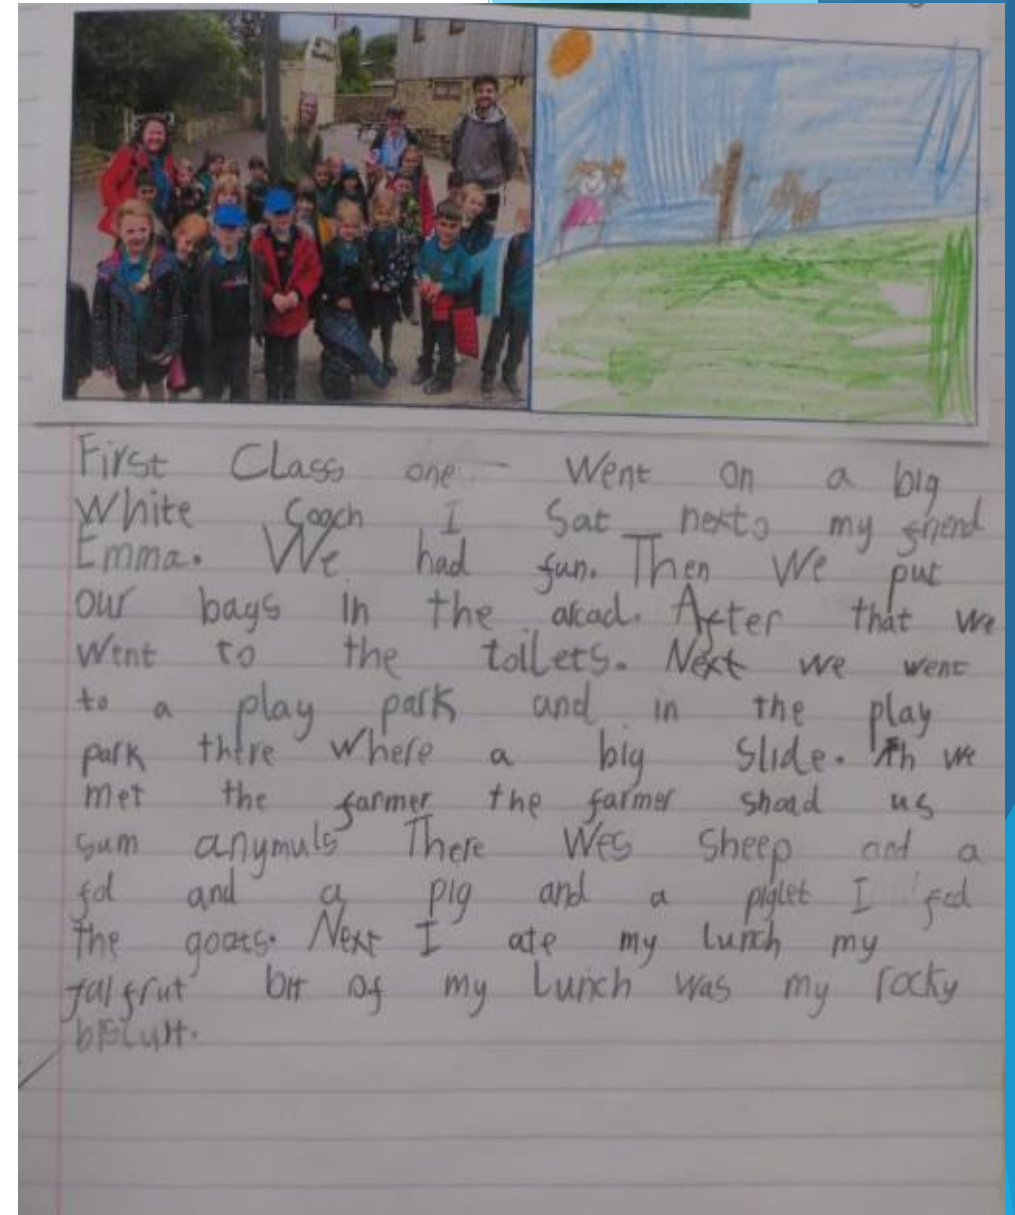 First Class one Went on a big
White Coach I Sat nexto my friend
Emma. We had fun. Then We put
our bags in the arcad. After that we
Went to the toilets. Next we went
to a play park and in the play
park there where a big Slide. Th we
met the farmer the farmer shoad us
sum anymuls There Wes Sheep and a
fol and a pig and a piglet I fed
the goats. Next I ate my lunch my
falfrut bit of my Lunch was my rocky
biscuit.